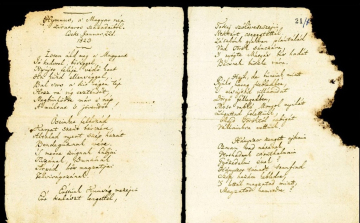 Hymnus, a' Magyar nép
zivataros századaiból.
Cseke, Januar. 22d.
1823.
Isten áldd meg a' Magyart
Jó kedvvel, bőséggel,
Nyújts feléje védő kart
Ha küzd ellenséggel;
Bal sors a' kit régen tép
Hozz rá víg esztendőt,
Megbünhödte már e' nép
A' multat 's jövendőt.
Őseinket felhozád
Kárpát szent bérczére,
Általad nyert szép hazát
Bendegúznak vére.
'S merre zúgnak habjai
Tiszának, Dunának,
Árpád hős magzatjai
Felvirágozának.
Értünk Kunság mezein
Ért kalászt lengettél,
Tokaj szőlővesszein
Nektárt csepegtettél.
Zászlónk gyakran plántálád
Vad Török sánczára,
'S nyögte Mátyás bús hadát
Bécsnek büszke vára.
Hajh, de bűneink miatt
Gyúlt harag kebledben,
'S elsujtád villámidat
Dörgő fellegedben,
Most rabló Mongol nyilát
Zúgattad felettünk,
Majd Töröktől rabigát
Vállainkra vettünk.
Hányszor zengett ajkain
Ozman vad népének
Vert hadunk csonthalmain
Győzedelmi ének!
Hányszor támadt tenfiad
Szép hazám kebledre,
'S lettél magzatod miatt
Magzatod hamvvedre?